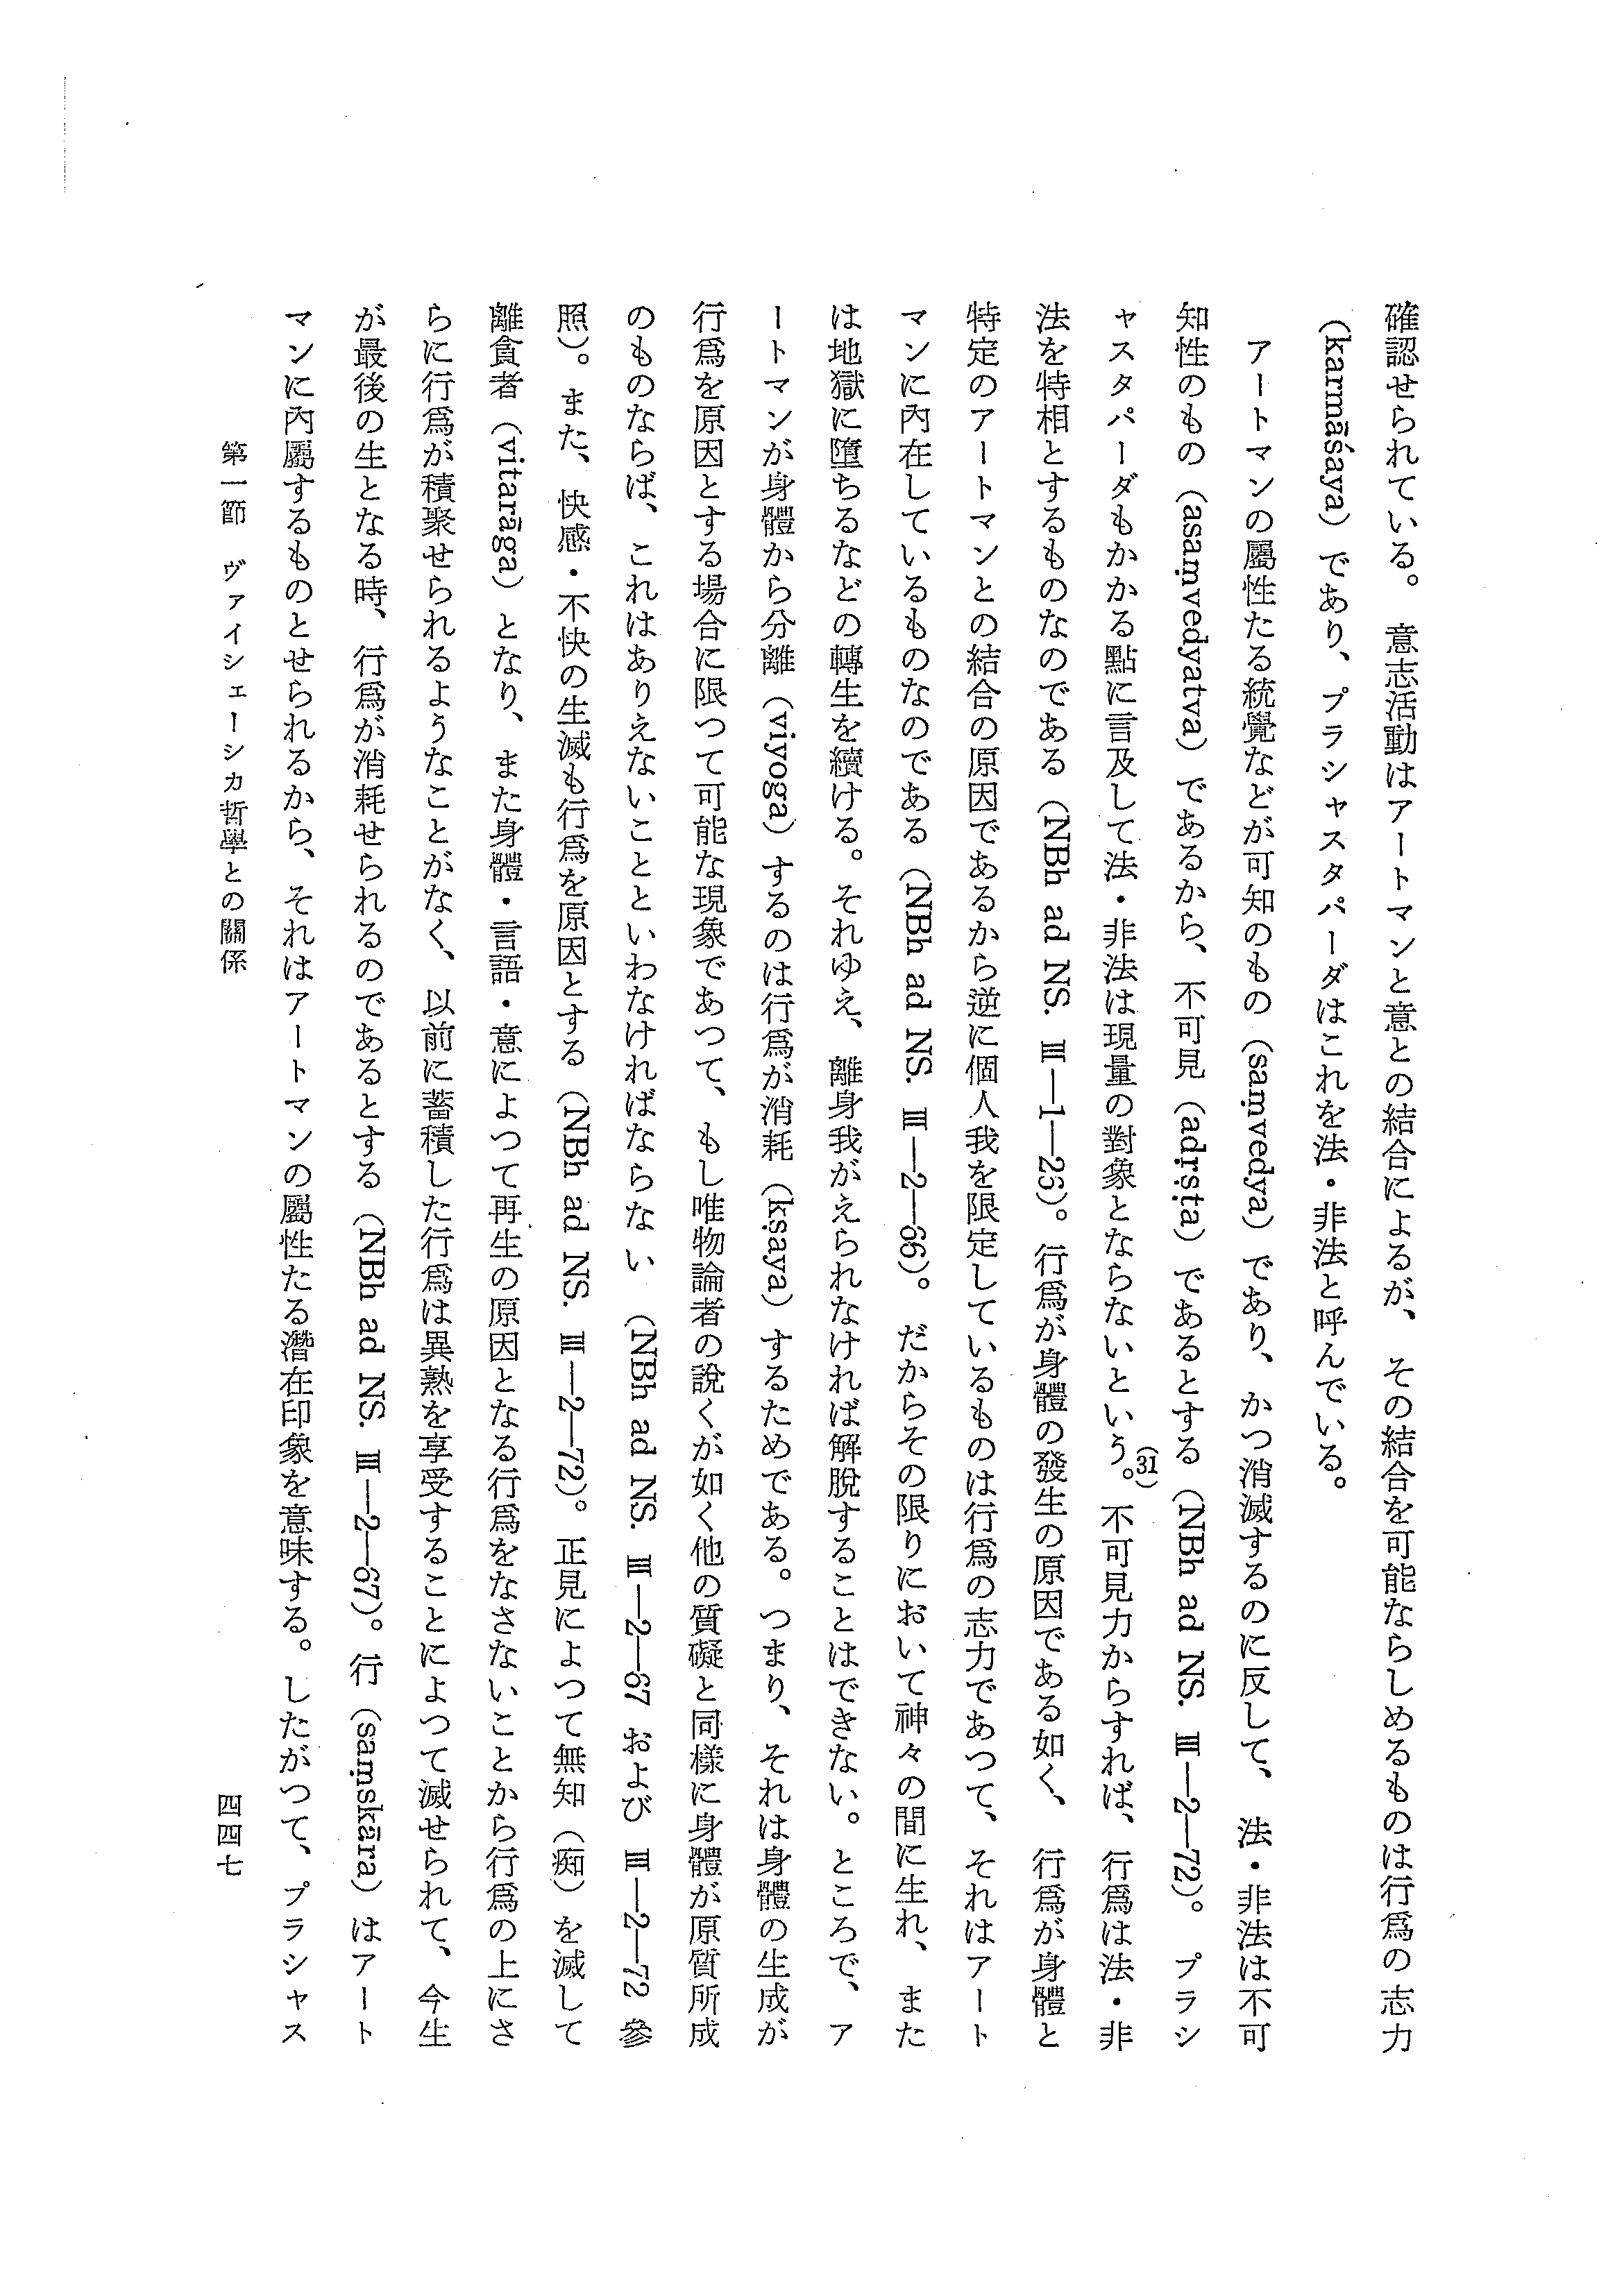 確認せられている。意志活動はアートマンと意との結合によるが、その結合を可能ならしめるものは行爲の志力
(karmāśaya) であり、プラシャスタパーダはこれを法・非法と呼んでいる。
アートマンの屬性たる統覺などが可知のもの (saṃvedya) であり、かつ消滅するのに反して、法・非法は不可
知性のもの (asaṃvedyatva) であるから、不可見 (adṛṣṭa) であるとする (NBh ad NS. Ⅲ—2—72)。プラシ
ャスタパーダもかかる點に言及して法・非法は現量の對象とならないという。(31)不可見力からすれば、行爲は法・非
法を特相とするものなのである (NBh ad NS. Ⅲ—1—23)。行爲が身體の發生の原因である如く、行爲が身體と
特定のアートマンとの結合の原因であるから逆に個人我を限定しているものは行爲の志力であつて、それはアート
マンに內在しているものなのである (NBh ad NS. Ⅲ—2—66)。だからその限りにおいて神々の間に生れ、また
は地獄に墮ちるなどの轉生を續ける。それゆえ、離身我がえられなければ解脫することはできない。ところで、ア
ートマンが身體から分離 (viyoga) するのは行爲が消耗 (kṣaya) するためである。つまり、それは身體の生成が
行爲を原因とする場合に限つて可能な現象であつて、もし唯物論者の說くが如く他の質礙と同樣に身體が原質所成
のものならば、これはありえないことといわなければならない (NBh ad NS. Ⅲ—2—67 および Ⅲ—2—72 參
照)。また、快感・不快の生滅も行爲を原因とする (NBh ad NS. Ⅲ—2—72)。正見によつて無知（痴）を滅して
離貪者 (vitarāga) となり、また身體・言語・意によつて再生の原因となる行爲をなさないことから行爲の上にさ
らに行爲が積聚せられるようなことがなく、以前に蓄積した行爲は異熟を享受することによつて滅せられて、今生
が最後の生となる時、行爲が消耗せられるのであるとする (NBh ad NS. Ⅲ—2—67)。行 (saṃskāra) はアート
マンに內屬するものとせられるから、それはアートマンの屬性たる潛在印象を意味する。したがつて、プラシャス
第一節 ヴァイシェーシカ哲學との關係
四四七